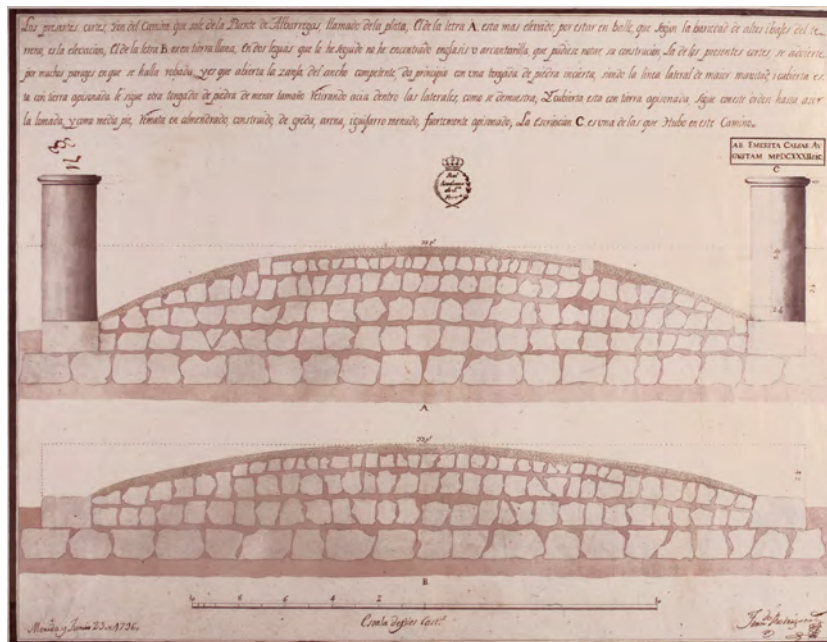 Los presentes cortes, son del Camino que sale de la Puente de Albarregas, llamado de la plata, El de la letra A esta mas elevado, por estar en balle, que segun la bariedad de altos i bajos del te
rreno, es la elevacion, El de la letra B. es en tierra llana. En dos leguas que le he seguido no he encontrado englasis o arcantarilla, que pudiese notar su construcion. La de los presentes cortes, se advierte
por muchos parages en que se halla robado, y es que abierta la zanja, del ancho competente, da principio con una tongada de piedra incierta, siendo la linea lateral de maior magnitud, i cubierta es
ta con tierra apisonada le sigue otra tongada de piedra de menor tamaño retirando acia dentro las laterales, como se demuestra, I cubierta esta con tierra apisonada, sigue con este orden hasta acer
la lomada, y como medio pie, remata en almendrado, construido, de greda, arena, i guijarro menudo, fuertemente apisonado, La escripcion C. es una de las que Hubo en este Camino.
AB EMERITA CAESAR AV
GVSTAM
C
Real
Academia
de S.n
22 p.s
A
22 p.s
B
6
4
2
Escala de pies Cast.s
Merida y Junio 23 de 1796.